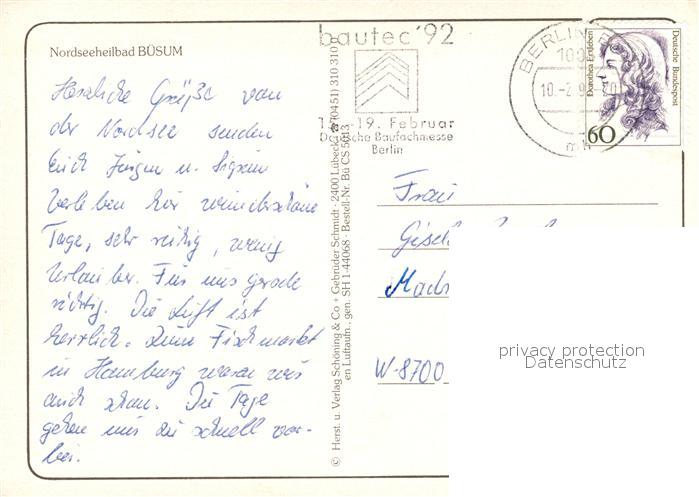 Nordseeheilbad BÜSUM
Herzliche Grüße von
der Nordsee senden
Euch Jürgen u. Sigrun
Verleben hier wunderschöne
Tage, sehr ruhig, wenig
Urlauber. Für uns gerade
richtig. Die Luft ist
herrlich. Zum Fischmarkt
in Hamburg waren wir
auch schon. Die Tage
gehen uns zu schnell vor-
bei.
© Herst. u. Verlag Schöning & Co + Gebrüder Schmidt · 2400 Lübeck · ☎ (0451) 310 310
en Luftaufn., gen. SH 1-44068 · Bestell-Nr. Bü CS 5013
bautec '92
19. Februar
Deutsche Baufachmesse
Berlin
BERLIN
10.-2.9
Dorothea Erxleben
Deutsche Bundespost
60
Frau
W-8700
privacy protection
Datenschutz